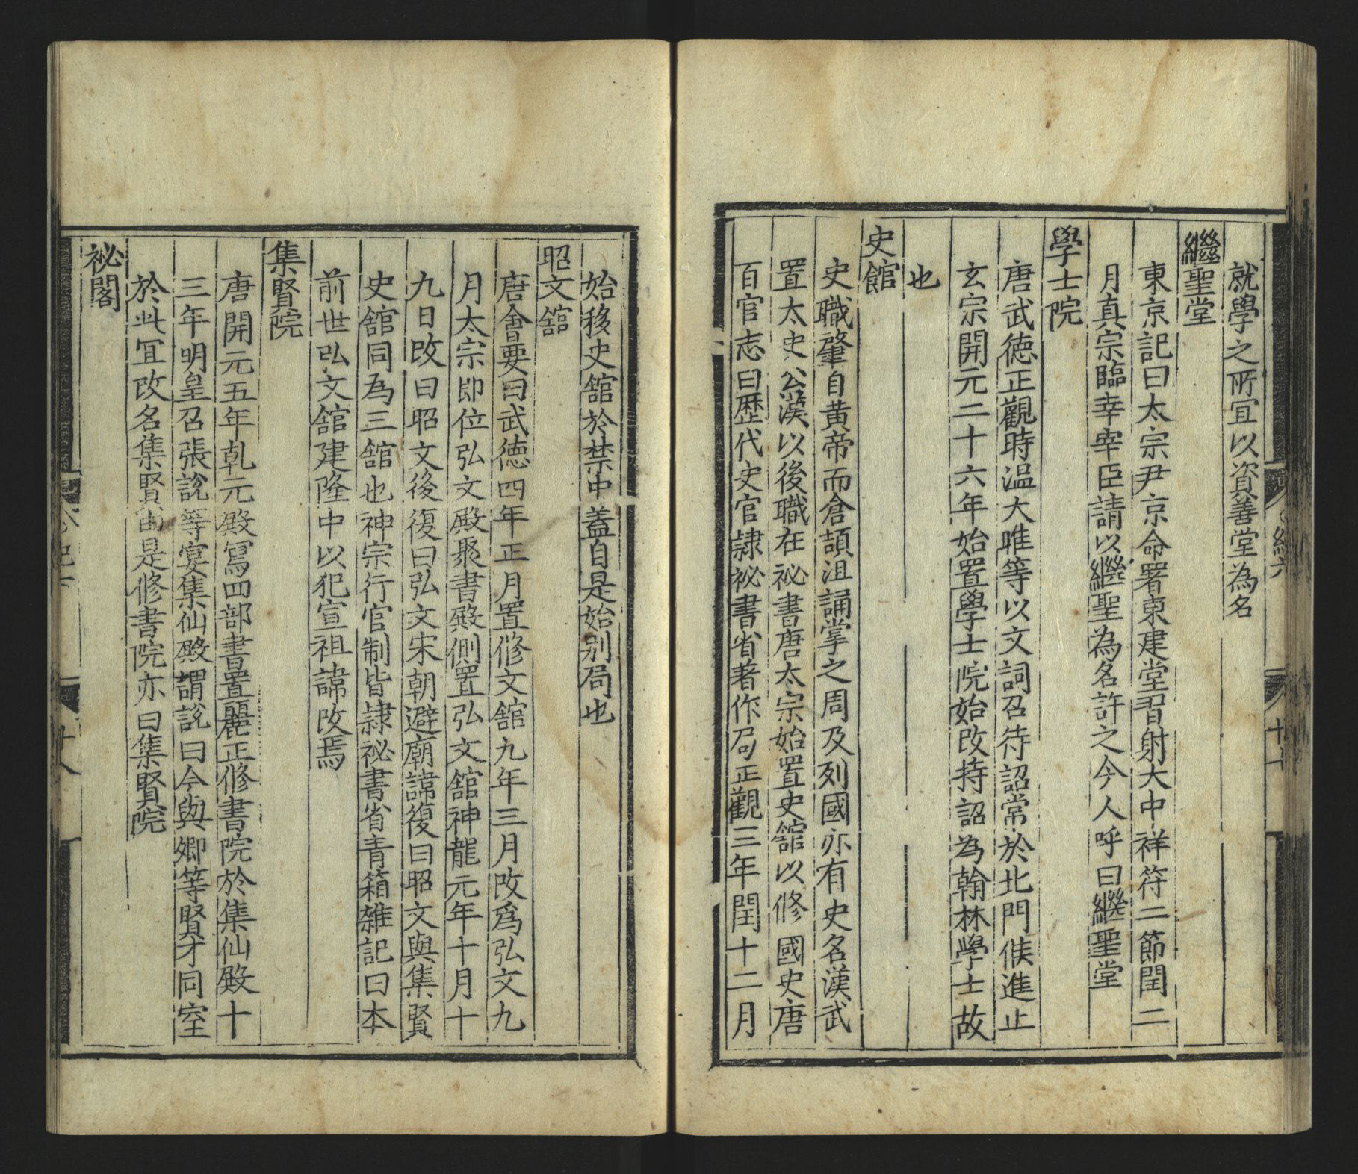 就學之所宜以資善堂為名
繼聖堂
東京記曰太宗尹京命署東建堂習射大中祥符二節閏二
月真宗臨幸宰臣請以繼聖為名許之今人呼曰繼聖堂
學士院
唐武德正觀時温大唯等以文詞召待詔常於北門候進止
玄宗開元二十六年始置學士院始改持詔為翰林學士故
也
史館
史職肇自黄帝而倉頡沮誦掌之周及列國亦有史名漢武
置太史公漢以後職在祕書唐太宗始置史舘以修國史唐
百官志曰歴代史官隷祕書省著作局正觀三年閏十二月
始移史舘於禁中蓋自是始别局也
昭文舘
唐會要曰武德四年正月置修文舘九年三月改爲弘文九
月太宗即位弘文殿聚書殿側置弘文舘神龍元年十月十
九日改曰昭文後復曰弘文宋朝避廟諱復曰昭文與集賢
史舘同為三舘也神宗行官制皆隷祕書省青箱雜記曰本
前世弘文舘建隆中以犯宣祖諱改焉
集賢院
唐開元五年乹元殿寫四部書置麗正修書院於集仙殿十
三年明皇召張說等宴集仙殿謂說曰今與卿等賢才同室
於此宜改名集賢由是修書院亦曰集賢院
祕閣